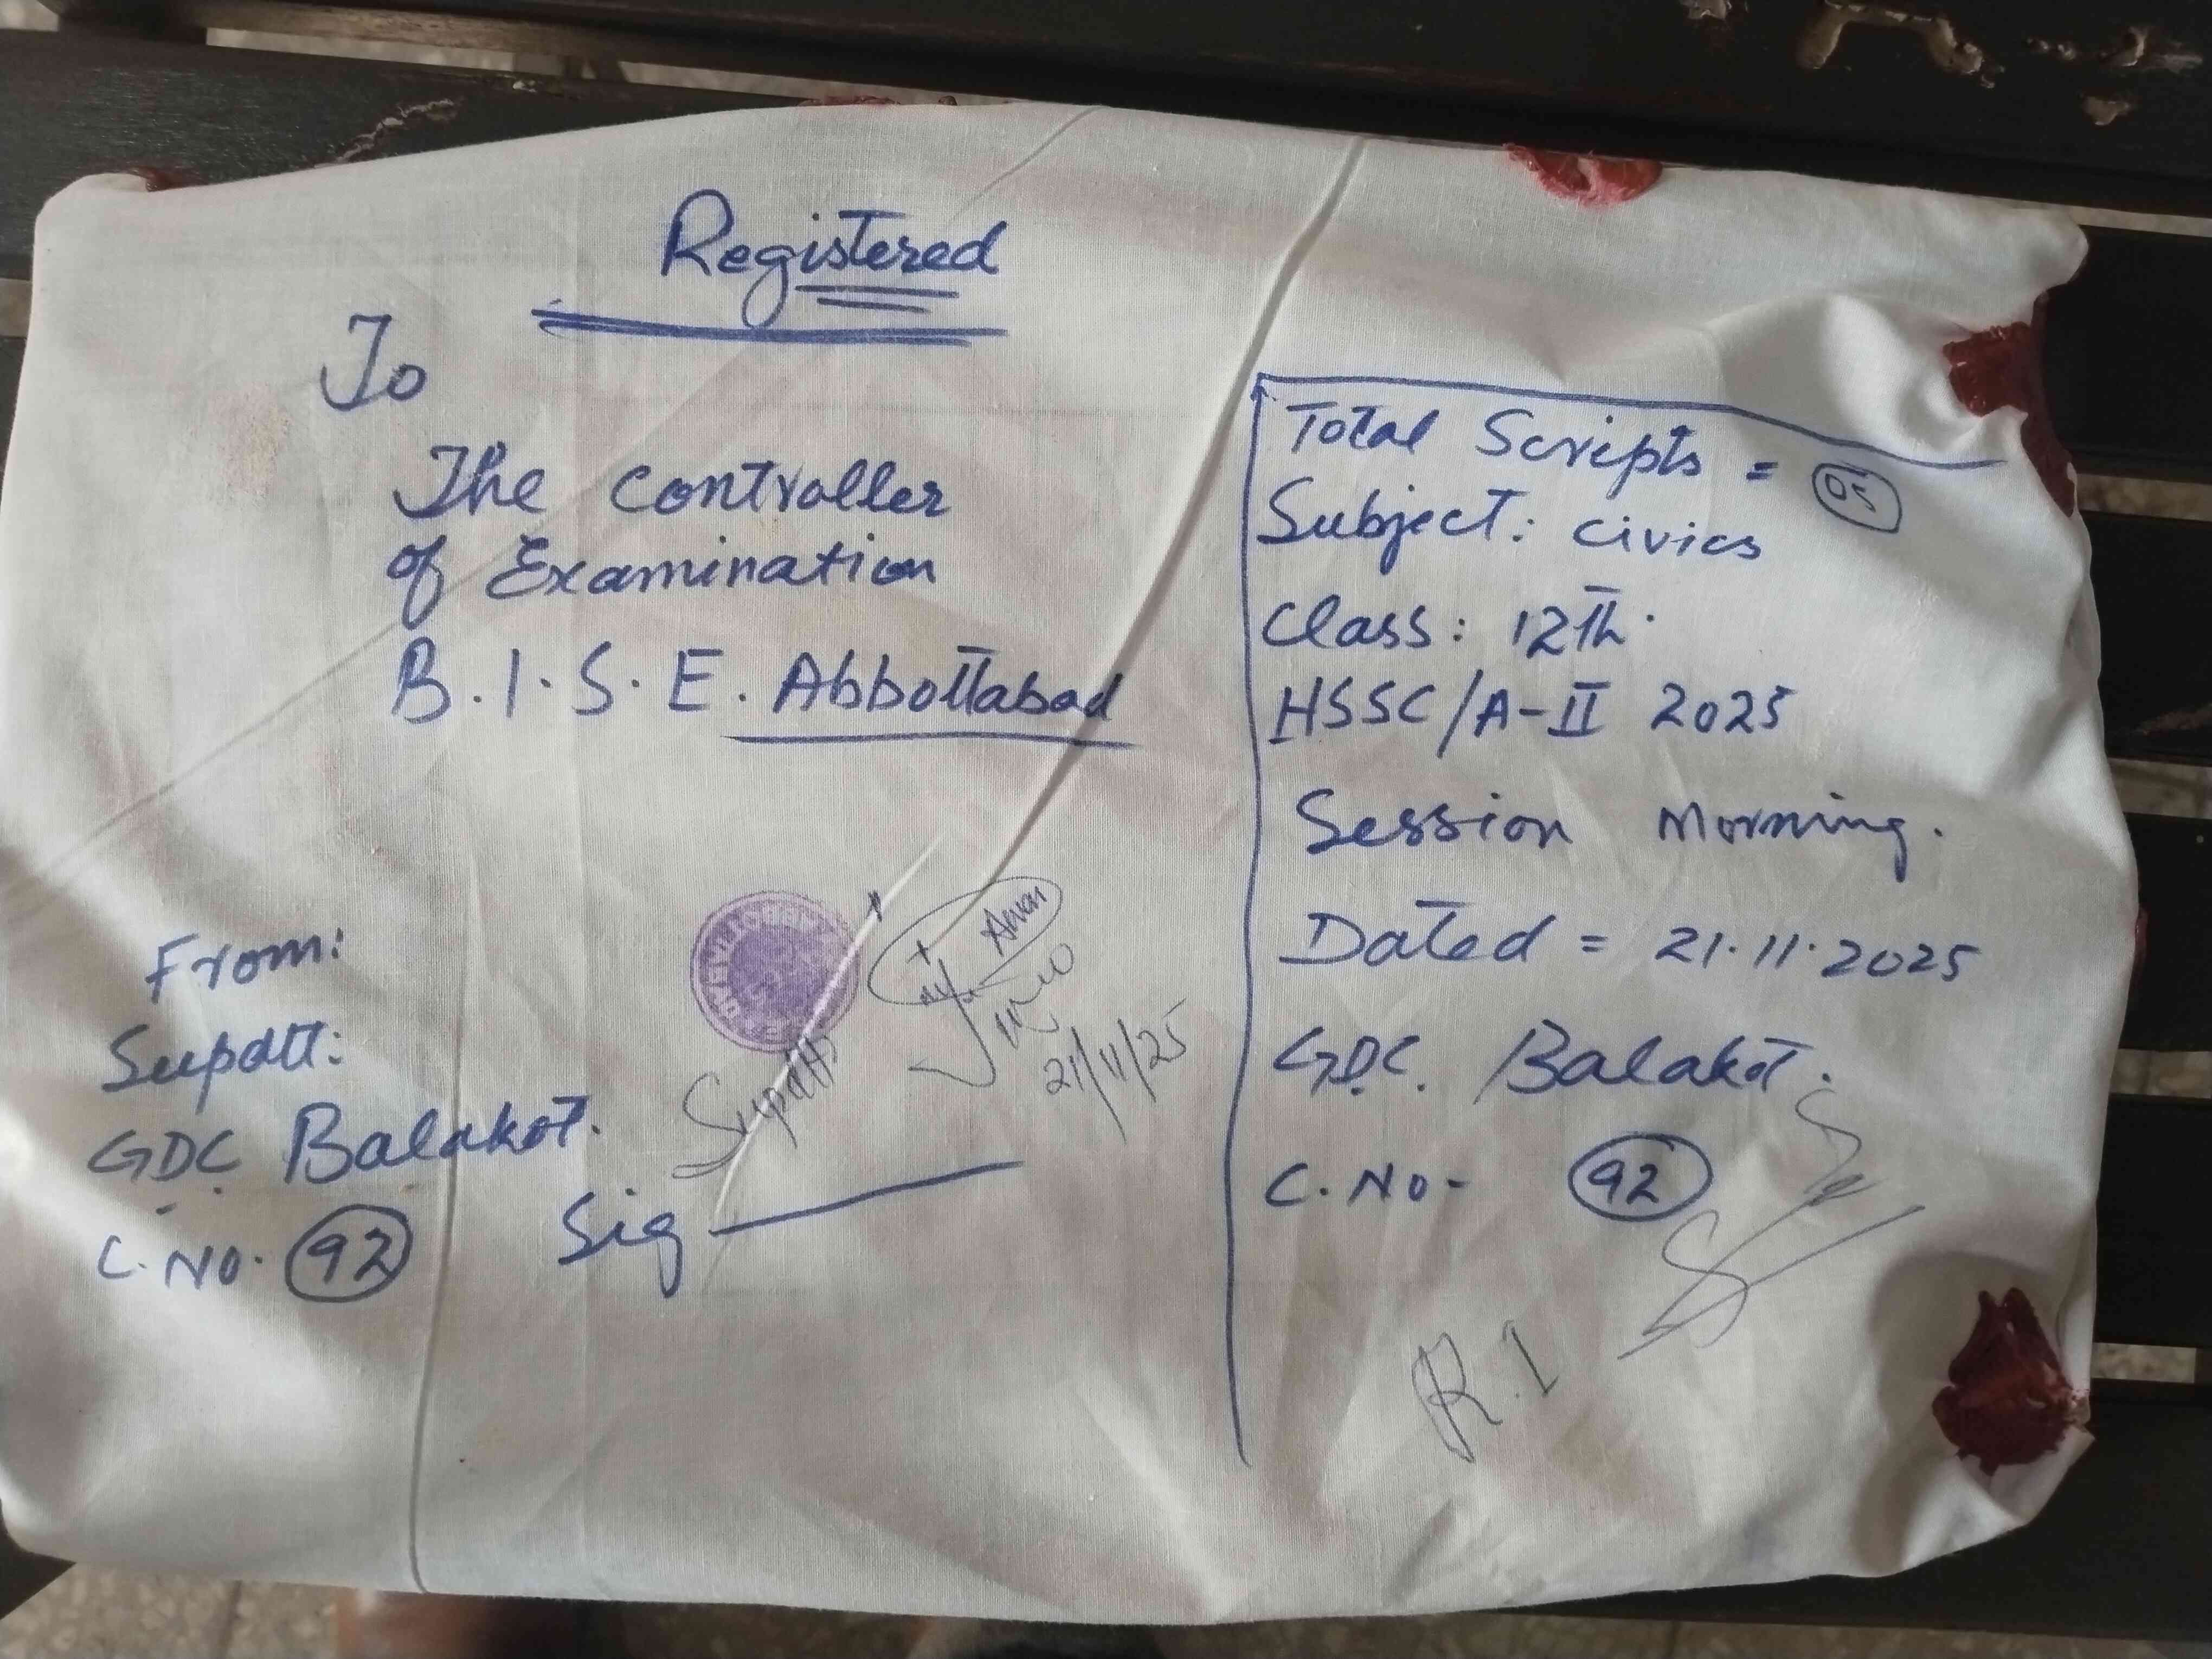 Registered
To
The Controller
of Examination
B.I.S.E. Abbottabad
From:
Supdtt:
GDC Balakot.
C.No. 92
Sig
Supdtt
Awan
21/11/25
Total Scripts = 05
Subject: Civics
Class: 12th.
HSSC/A-II 2025
Session Morning.
Dated = 21.11.2025
G.D.C. Balakot.
C.No- 92
R.I